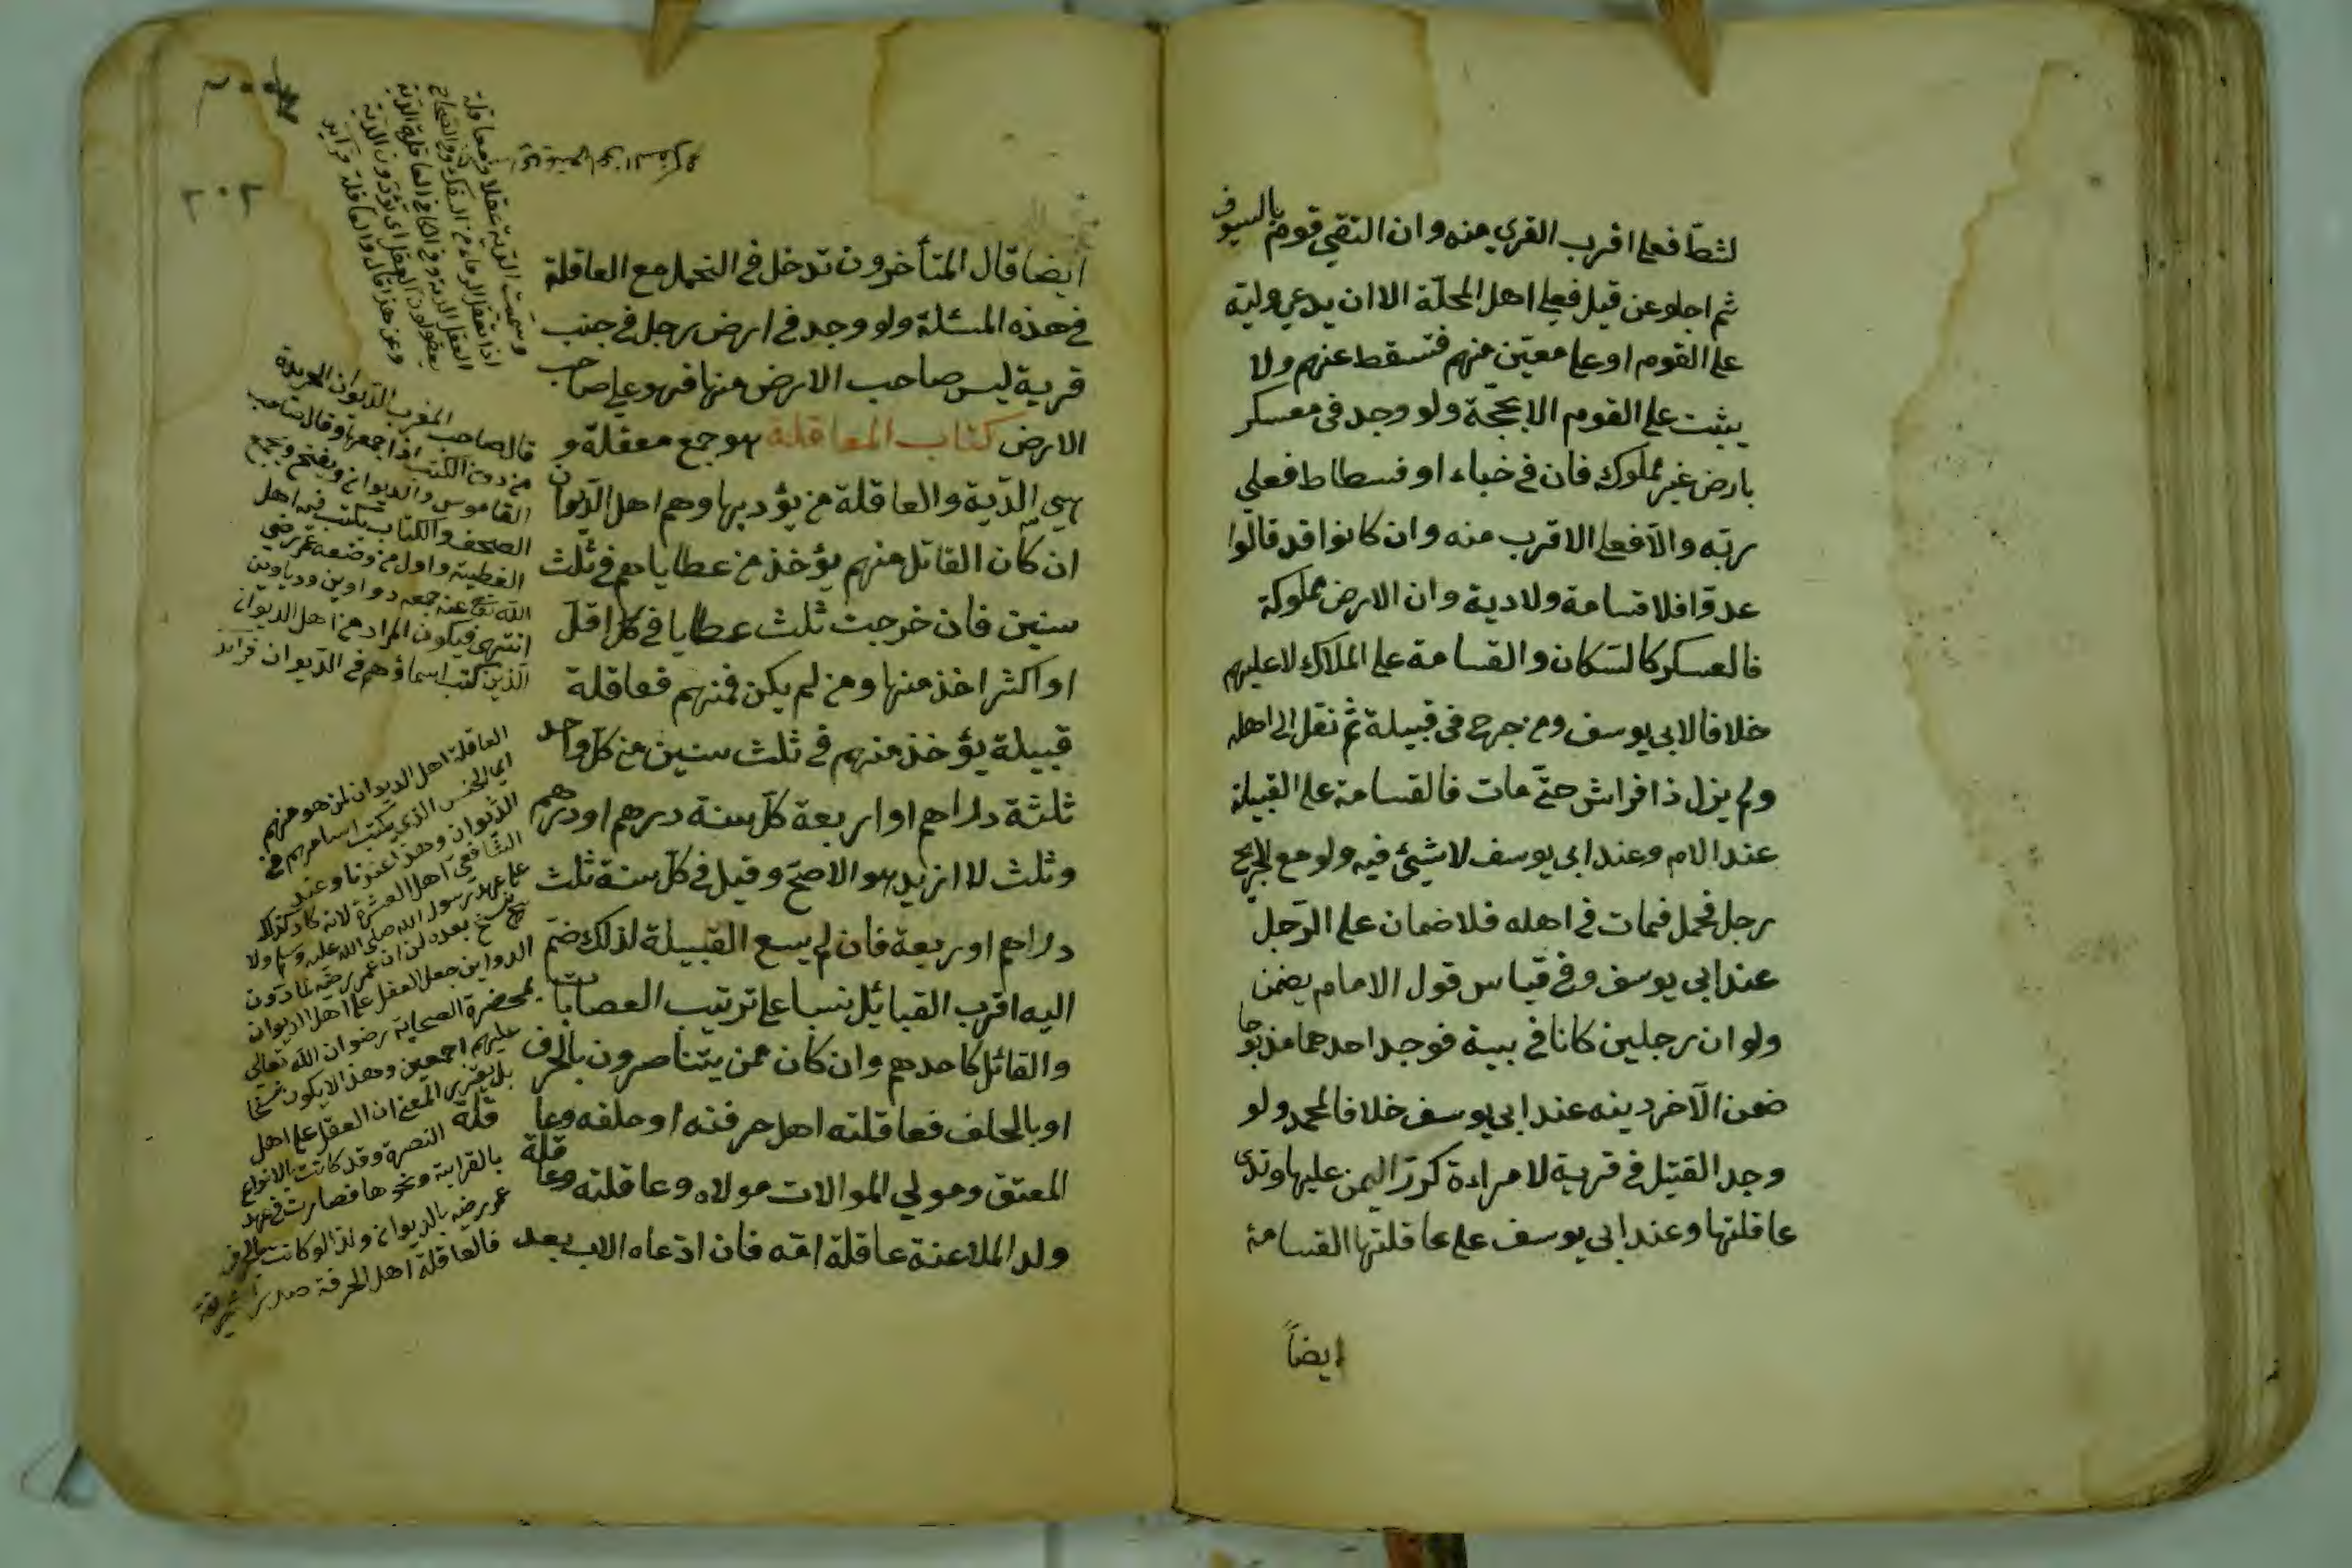 لشط فعلى اقرب القرى منه وان التقى قوم بالسيوف
ثم اجلوعن قيل فعلى اهل المحلّة الا ان يدعي وليّه
على القوم اوعلى معيّن منهم فتسقط عنهم ولا
يثبت على القوم الا بحجّة ولو وجد فى معسكر
بارض غير مملوك فان فى خباء او فسطاط فعلى
ربّه والّا فعلى الاقرب منه وان كانوا قد قاتلوا
عدوّا فلا قسامة ولادية وان الارض مملوكة
فالعسكر كالسّكان والقسامة على الملاك لا عليهم
خلافا لابى يوسف ومن جرح فى قبيلة ثم نقل الى اهله
ولم يزل ذا فراش حتّى مات فالقسامة على القبيلة
عند الامام وعند ابى يوسف لا شيئ فيه ولو مع الجريح
رجل فحمل فمات فى اهله فلا ضمان على الرّجل
عند ابى يوسف وفى قياس قول الامام يضمن
ولو ان رجلين كانا فى بيت فوجد احدهما مذبوحا
ضمن الآخر ديته عند ابى يوسف خلافا لمحمد ولو
وجد القتيل فى قرية لامراءة كرّر اليمين عليها وتدى
عاقلتها وعند ابى يوسف على عاقلتها القسامة
ايضاً
٢٠٢
ايضا قال المتأخرون تدخل فى التحمل مع العاقلة
فى هذه المسئلة ولو وجد فى ارض رجل فى جنب
قرية ليس صاحب الارض منها فهو على صاحب
الارض كتاب المعاقلة هو جمع معقلة و
هى الدّية والعاقلة من يؤديها وهم اهل الدّيوان
ان كان القاتل منهم يؤخذ من عطاياهم فى ثلث
سنين فان خرجت ثلث عطايا فى كل اقلّ
او اكثر اخذ منها ومن لم يكن منهم فعاقلة
قبيلة يؤخذ منهم فى ثلث سنين من كلّ واحد
ثلثة دراهم او اربعة كلّ سنة درهم او درهم
وثلث لا ازيد هو الاصحّ وقيل فى كلّ سنة ثلث
دراهم او ربعة فان لم يسع القبيلة لذلك ضمّ
اليه اقرب القبائل نسبا على ترتيب العصابات
والقاتل كاحدهم وان كان ممن يتناصرون بالحرف
او بالحلف فعاقلته اهل حرفته او حلفه وعاقلة
المعتق ومولى الموالات مولاه وعاقلته وعاقلة
ولد الملاعنة عاقلة امّه فان ادّعاه الاب بعد
قال صاحب المغرب الدّيوان الجريدة
من دون الكتب اذا جمعها وقال صاحب
القاموس والديوان ويفتح ويجمع
الصحف والكتاب يكتب فيه اهل
العطية واول من وضعه عمر رضى
الله تعالى عنه جمعه دواوين ودياوين
انتهى فيكون المراد من اهل الديوان
الذين كتب اسماؤهم فى الدّيوان فرائد
العاقلة اهل الديوان لمن هو منهم
اى الجيش الذى يكتب اساميهم فى
الدّيوان وهذا عندنا وعند
الشّافعى اهل العشيرة لانه كان كذلك
على عهد رسول الله صلى الله عليه وسلم ولا
نسخ بعده لنا ان عمر رضه لما دوّن
الدواوين جعل العقل على اهل الديوان
بمحضرة الصحابة رضوان الله تعالى
عليهم اجمعين وهذا لا يكون نسخا
بل تقرير المعنى ان العقل على اهل
النصرة وقد كانت بالانواع
بالقرابة ونحوها فصارت فى عهد
عمر رضه بالديوان ولذا لو كانت بالحرف
فالعاقلة اهل الحرفة